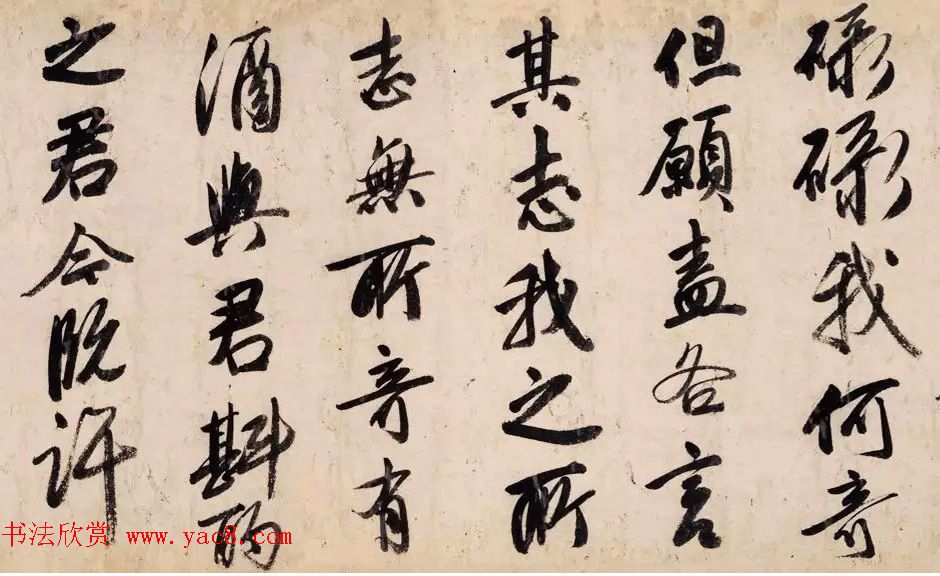 碌碌我何奇
但願盡各言
其志我之所
志無所奇有
酒與君斟酌
之君今既許
书法欣赏 www.yac8.com